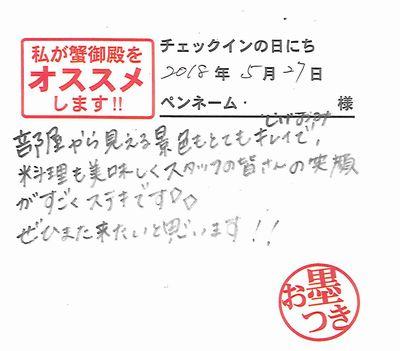 私が蟹御殿を
オススメ
します!!
チェックインの日にち
2018年 5月 27日
ペンネーム・ 様
部屋から見える景色もとてもキレイで、
料理も美味しくスタッフの皆さんの笑顔
がすごくステキです♡♡
ぜひまた来たいと思います!!
お墨
つき